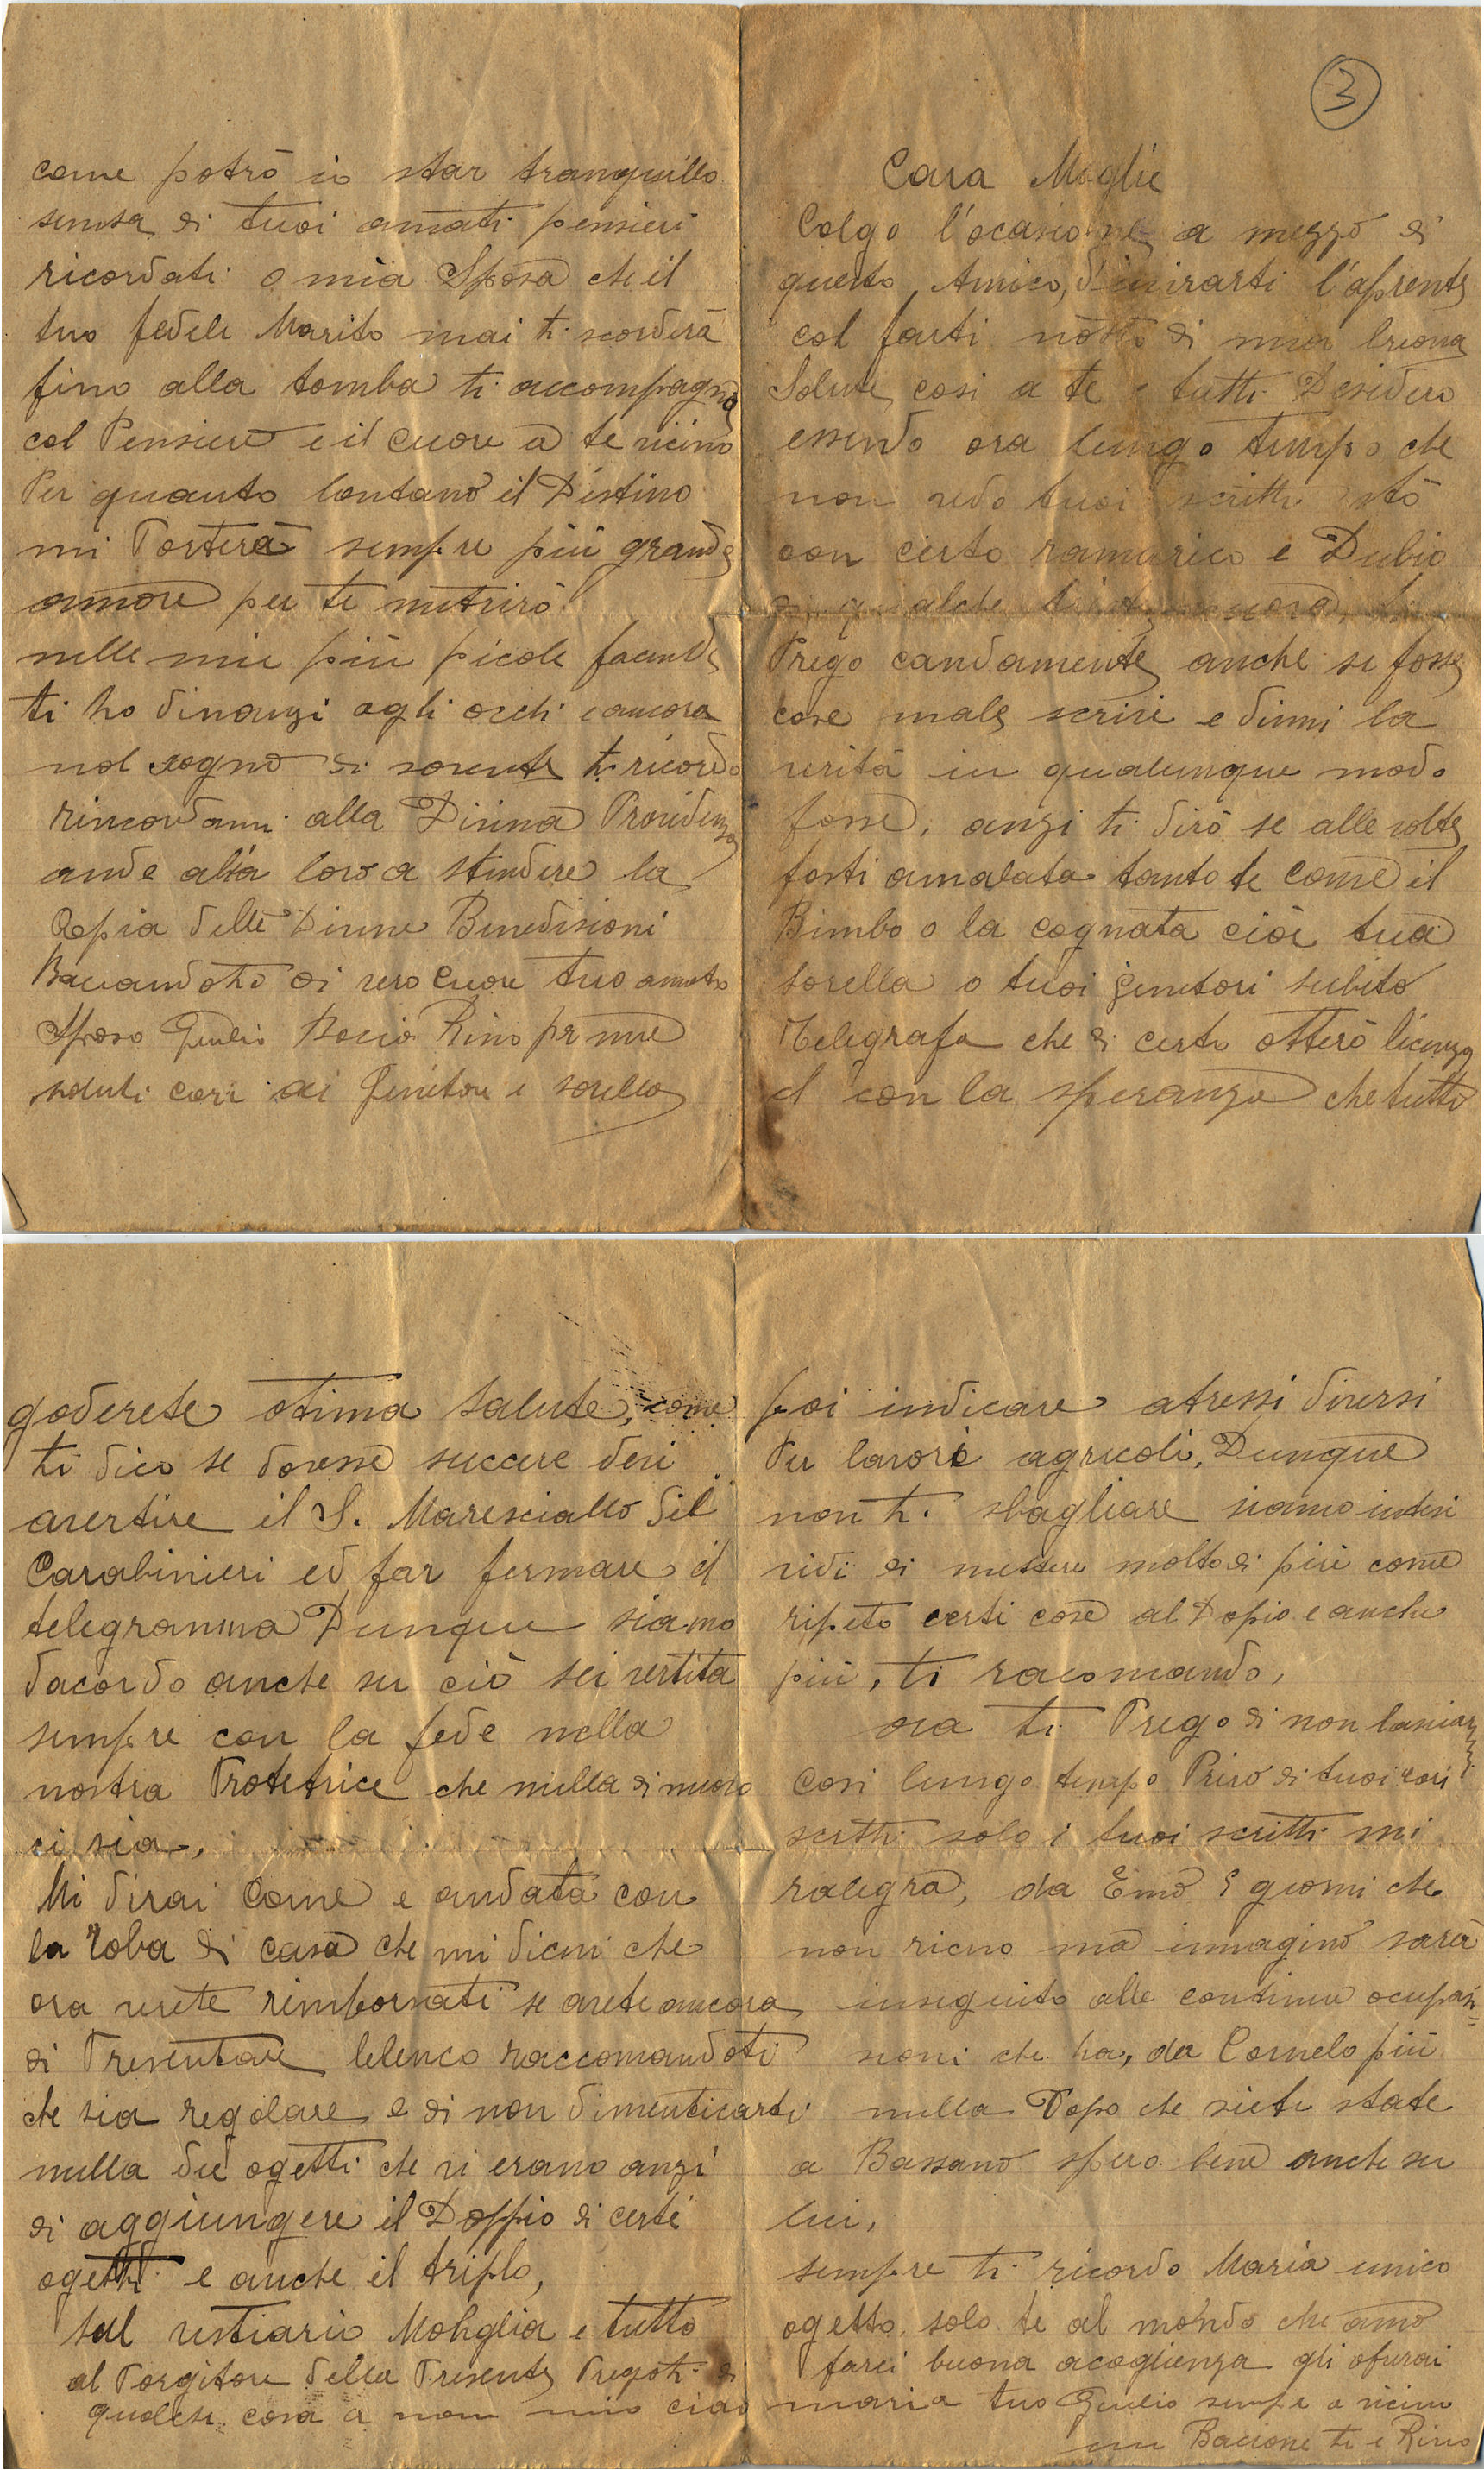 3
Cara Moglie
Colgo l'ocasione a mezzo di
questo Amico, d'invirarti l'aprente
col farti noto di mia buona
Salute cosi a te e tutti Desidero
essendo ora lungo tempo che
non vedo tuoi scritti stò
con certo ramarico e Dubio
qualche
Prego caudamente anche se fosse
cose male scrivi e dimmi la
verità in qualunque modo
fosse, anzi ti dirò se alle volte
fosti amalata tanto te come il
Bimbo o la cognata cioè tua
sorella o tuoi genitori subito
Telegrafa che di certo otterò licenza
d con la speranza che tutti
goderete otima salute, come
ti dico se dovesse succere devi
avertire il S. Maresciallo dei
Carabinieri ed far fermare il
telegramma Dunque siamo
dacordo anche su ciò sei vertita
sempre con la fede nella
nostra Protetrice che nulla di nuovo
ci sia,
Mi dirai Come e andata con
la roba di casa che mi dicevi che
ora verete rimborsati se avete ancora
di Presentare lelenco raccomandoti
che sia regolare e di non dimenticarti
nulla die ogetti che vi erano anzi
di aggiungere il Doppio di certi
ogetti e anche il triplo,
sul vestiario Mobiglia e tutto
al Porgitore della Presente Pregoti di
qualche cosa a nom mio ciao
poi indicare atressi diversi
Per lavori agricoli, Dunque
non ti sbagliare siamo intesi
vidi di mettere molto di più come
ripeto certi cose al Dopio e anche
più, ti racomando,
ora ti Prego di non lasiar
Cosi lungo tempo Privo di tuoi cari
scritti solo i tuoi scritti mi
ralegra, da Emo è giorni che
non ricevo ma immagino sarà
inseguito alle continue ocupazi=
sioni che ha, da Cornelo più
nulla Dopo che siete state
a Bassano spero bene anche su
lui,
sempre ti ricordo Maria unico
ogetto solo te al mondo che amo
farci buona acoglienza gli ofurai
maria tuo Giulio sempe a vicino
un Bacione te e Rino
come potrò io star tranquillo
sensa di tuoi amati pensieri
ricordati o mia Sposa che il
tuo fedele Marito mai ti scorderà
fino alla tomba ti accompagno
col Pensiero e il cuore a te vicino
Per quanto lontano il Destino
mi Porterà sempre più grande
amore per te nutrirò
nelle mie più picole facende
ti ho dinanzi agli occhi e ancora
nel sogno di sovente ti ricordo
rincordami alla Divina Providenza
ande alsa loro a stendere la
Copia delle Divine Benedisioni
Baciandoti di vero Cuore tuo amato
Sposo Giulio Bacio Rino pr me
saluti cari ai Genitori e sorella